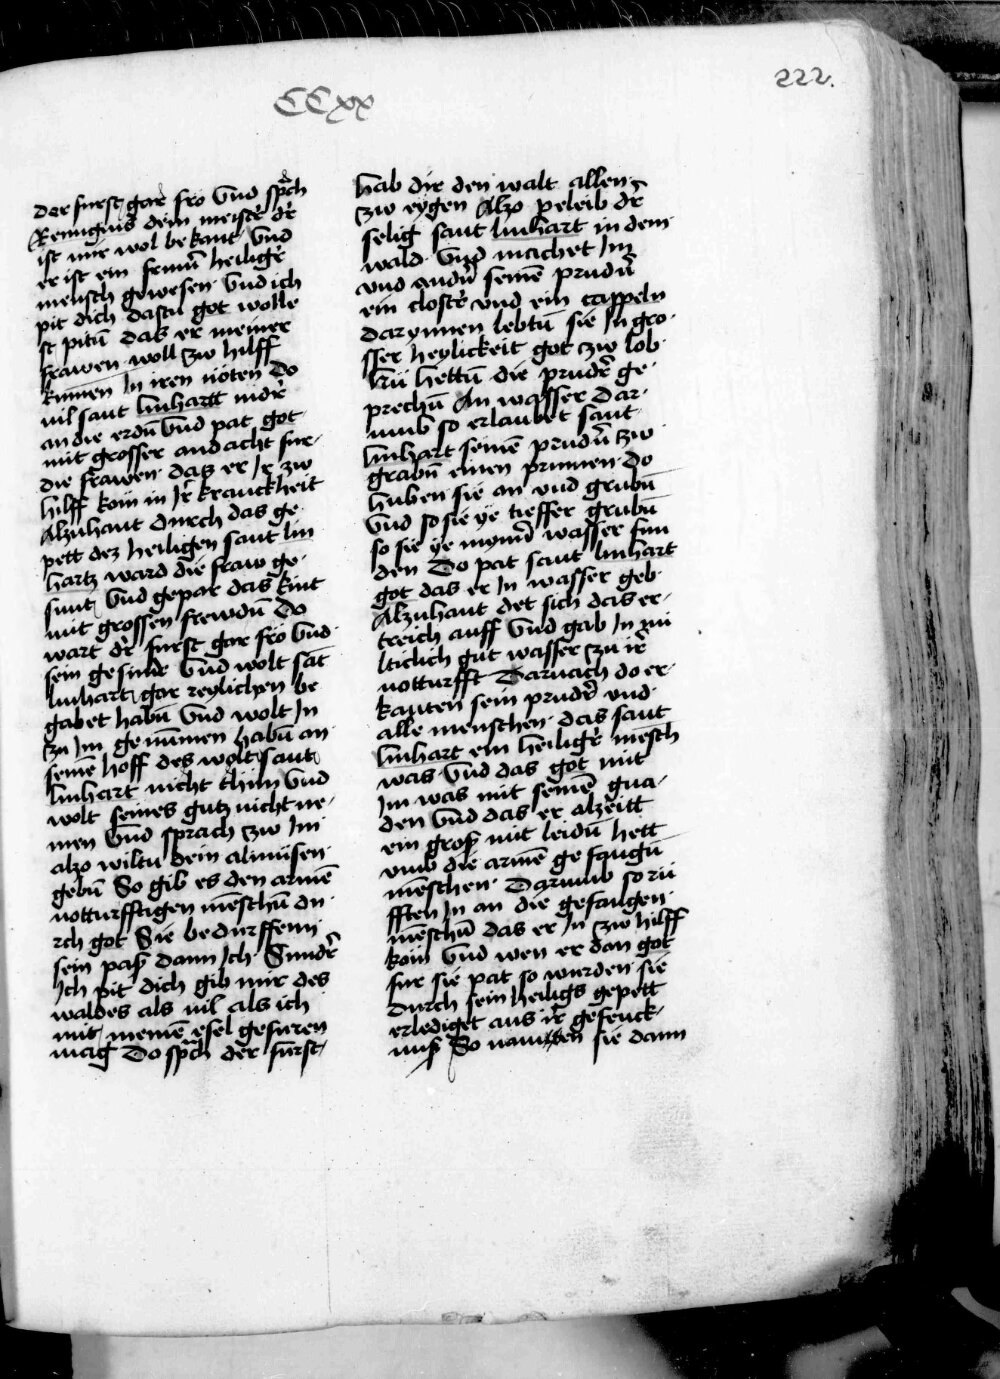 CCxx
222.
der furst gar fro vnd sprach
Remigius dein meister der
ist mir wol bekant vnd
er ist ein frumer heiliger
mensch gewesen vnd ich
pit dich dastu got wolle
st pitn̄ das er meiner
frawen woll zw hilff
kumen In iren noten Do
vil sant linhartt nider
an die erdn̄ vnd pat got
mit grosser andacht fur
die frawen das er Ir zw
hilff kom in Ir kranckheit
Alzuhant durch das ge
pett dez heiligen sant lin
hartz ward die fraw ge
sunt vnd gepar das kint
mit grossen frewdn̄ Do
wart dr̄ furst gar fro vnd
sein gesinde vnd wolt sāt
linhart gar reylichen be
gabet habn̄ vnd wolt In
zu Im genūmen habn̄ an
seinē hoff des wolt sant
linhart nicht thun vnd
wolt seines gutz nicht ne
men vnd sprach zw Im
alzo wiltu dein almūsen
gebn̄ So gib es den armē
notturfftigen mēschn̄ du
rch got Sie bedurffenn
sein paß dann Ich Sundr̄
Ich pit dich gib mir des
waldes als vil als ich
mit meinē esel gefuren
mag Do sprach der furst
hab dir den walt allen
zw eygen Alzo peleib dr̄
selig sant linhart in dem
wald vnd machet Im
vnd andn̄ seinē prudn̄
ein clostr̄ vnd ein cappeln
darynnen lebtn̄ sie In gro
sser heylickeit got zw lob
Nu hettn̄ die prudr̄ ge
prechn̄ An wasser dar
umb so erlaubet sant
linhart seinē prudn̄ zw
grabn̄ einen prunnen do
huben sie an vnd grubn̄
vnd so sie ye tieffer grubn̄
so sie ye mynnr̄ wasser fun
den Do pat sant linhart
got das er In wasser geb
Alzuhant det sich das er
treich auff vnd gab In mi
lticlich gut wasser zu ir
notturfft Darnach do er
kanten sein prudr̄ vnd
alle menschen das sant
linhart ein heiligr̄ mēsch
was vnd das got mit
Im was mit seinē gna
den vnd das er alzeitt
ein groß mit leidn̄ hett
vmb die armē gefangn̄
mēschen Darumb so rū
fften In an die gefangen
mēschn̄ das er In zw hilff
kom vnd wen er dan got
fur sie pat so wurden sie
durch sein heiligs gepett
erlediget aus ir gefenck
nuß So namen sie dann